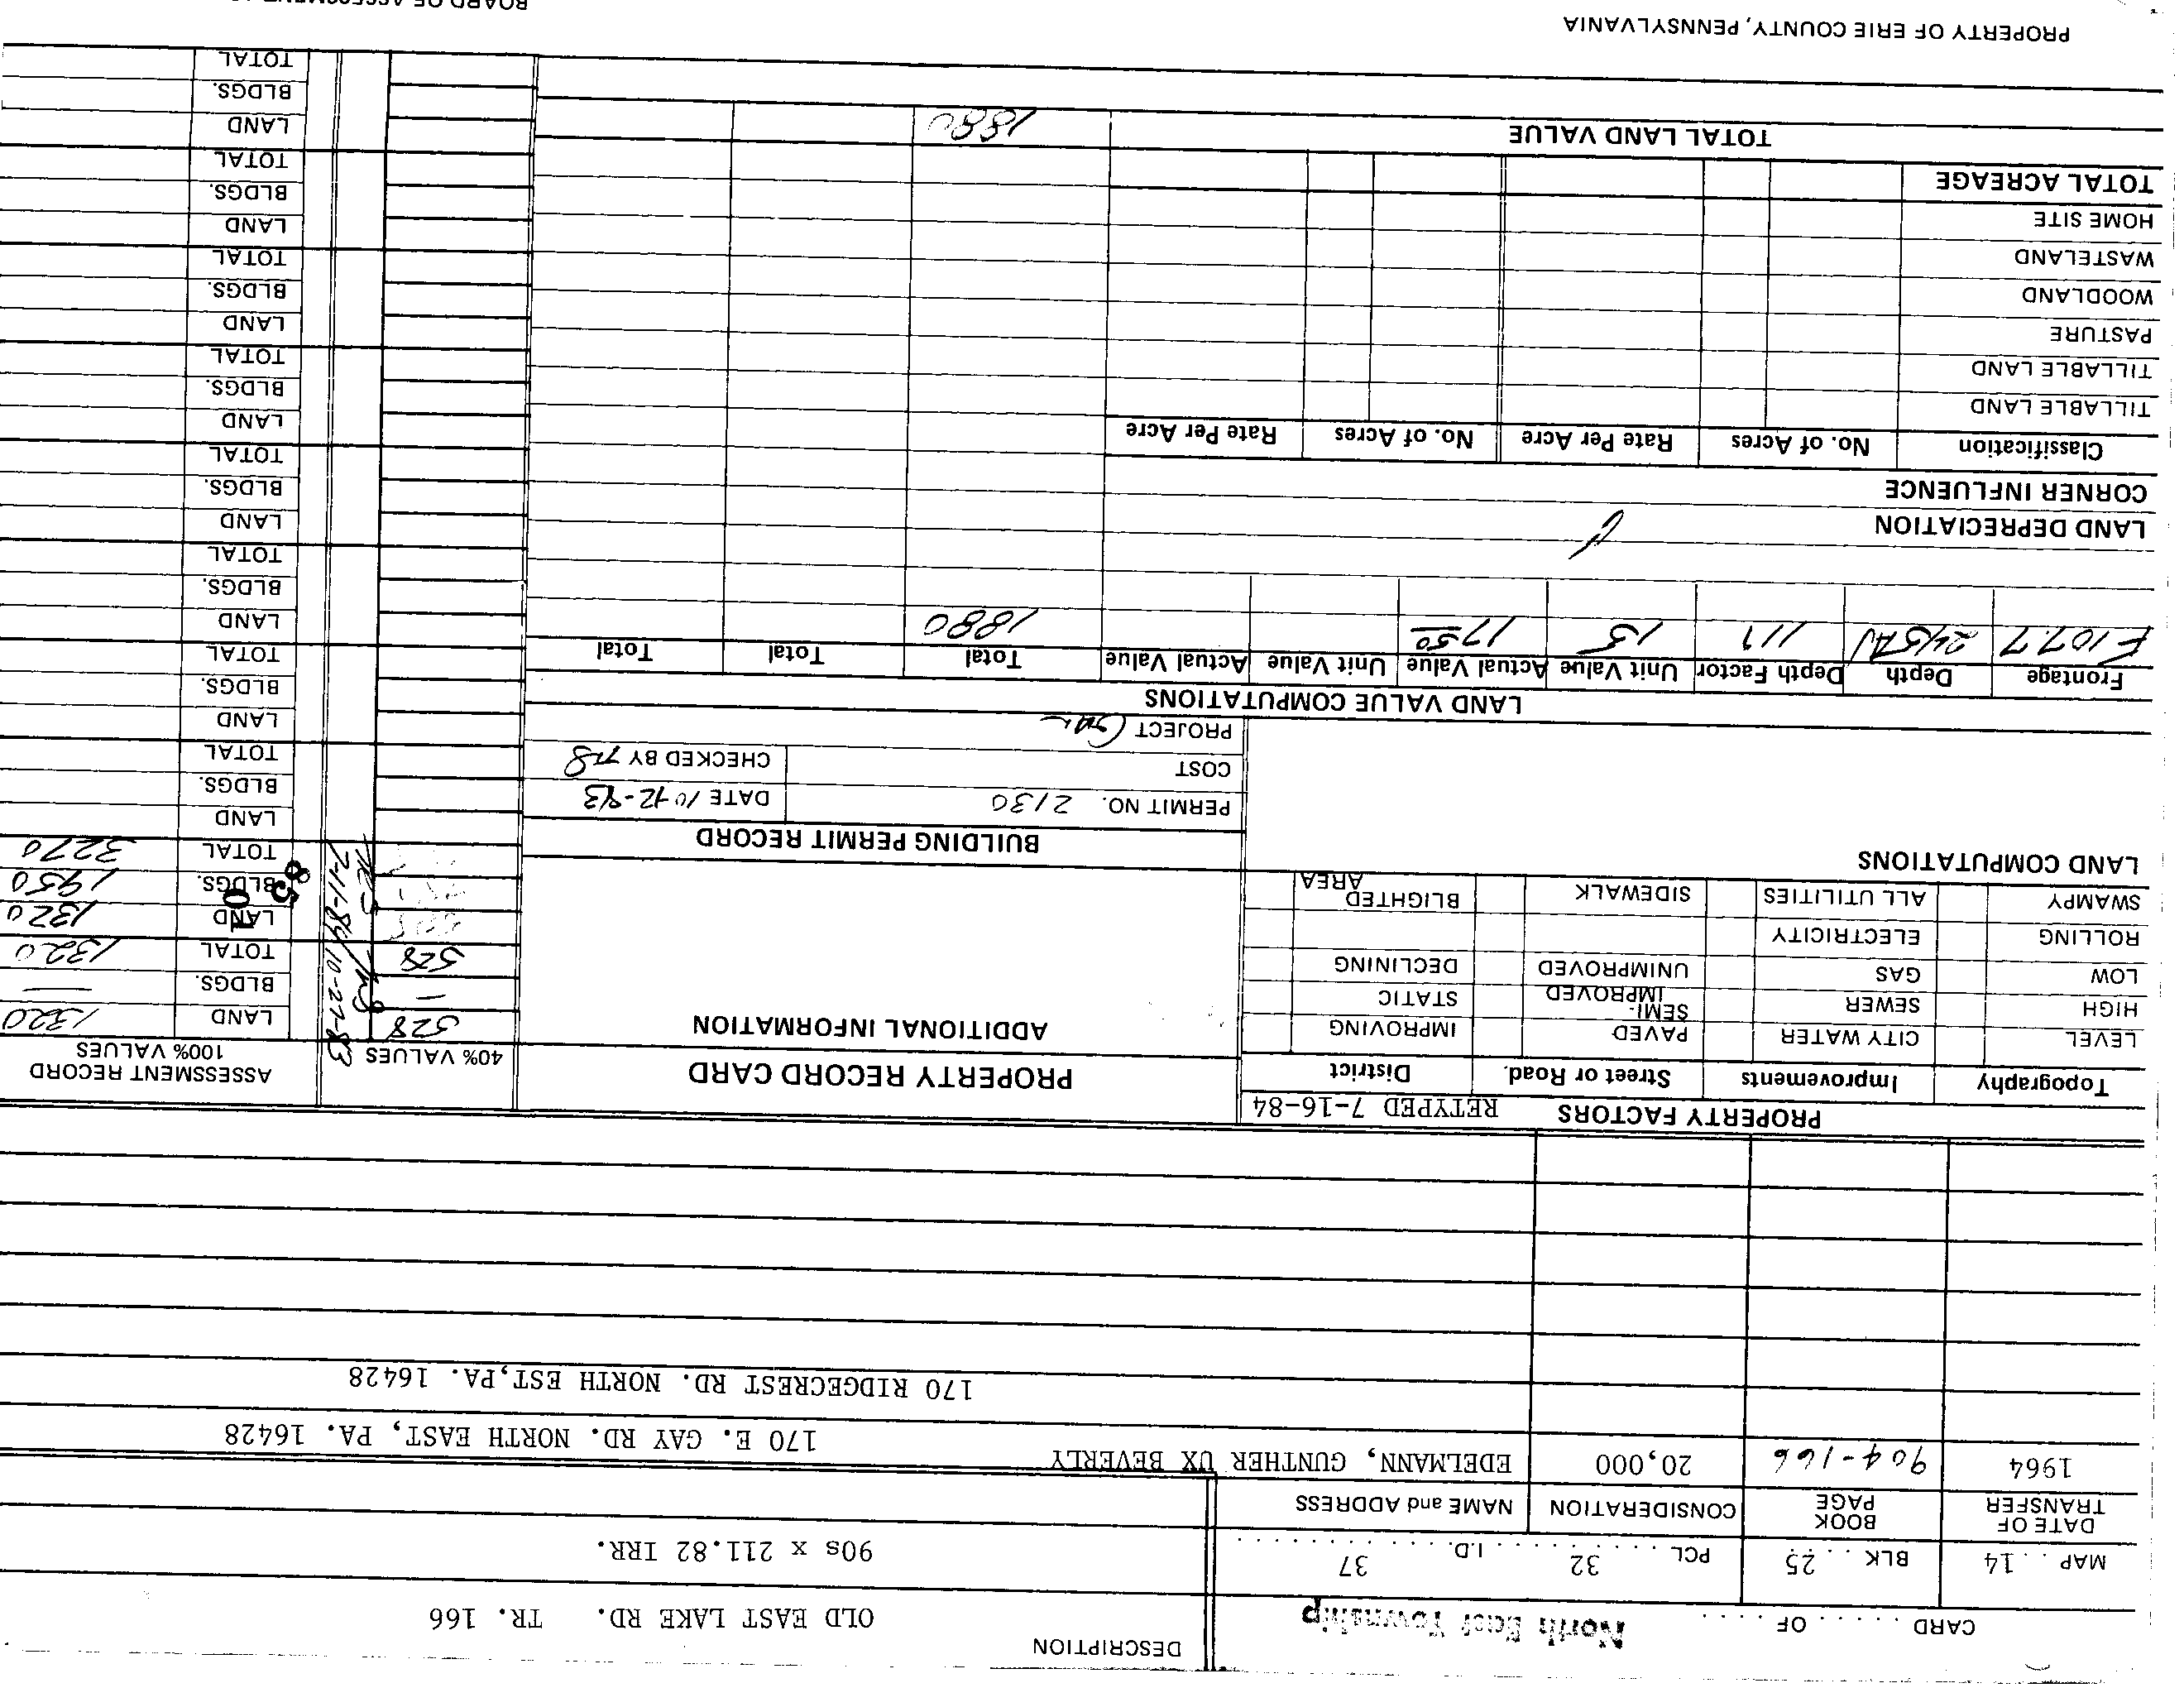 CARD ..... OF ....
North East Township
DESCRIPTION
OLD EAST LAKE RD. TR. 166
MAP . . 14 BLK . . . 25 PCL . . . 32 I.D. . . 37
90s x 211.82 IRR.
DATE OF TRANSFER BOOK PAGE CONSIDERATION NAME and ADDRESS
1964 904-166 20,000 EDELMANN, GUNTHER UX BEVERLY
170 E. GAY RD. NORTH EAST, PA. 16428
170 RIDGECREST RD. NORTH EST,PA. 16428
PROPERTY FACTORS RETYPED 7-16-84
Topography Improvements Street or Road. District
LEVEL CITY WATER PAVED IMPROVING
HIGH SEWER SEMI-IMPROVED STATIC
LOW GAS UNIMPROVED DECLINING
ROLLING ELECTRICITY
SWAMPY ALL UTILITIES SIDEWALK BLIGHTED AREA
LAND COMPUTATIONS
PROPERTY RECORD CARD
ADDITIONAL INFORMATION
BUILDING PERMIT RECORD
PERMIT NO. 2130 DATE 10-12-83
COST CHECKED BY
PROJECT
LAND VALUE COMPUTATIONS
Frontage Depth Depth Factor Unit Value Actual Value Unit Value Actual Value Total Total Total
F 107.7 111 15 17 50 1880
LAND DEPRECIATION
CORNER INFLUENCE
Classification No. of Acres Rate Per Acre No. of Acres Rate Per Acre
TILLABLE LAND
TILLABLE LAND
PASTURE
WOODLAND
WASTELAND
HOME SITE
TOTAL ACREAGE
TOTAL LAND VALUE 1880
40% VALUES
ASSESSMENT RECORD
100% VALUES
528 10-27-83 LAND 1320
— BLDGS. —
528 TOTAL 1320
7-11-84 LAND 1320
BLDGS. 1950
TOTAL 3270
LAND
BLDGS.
TOTAL
LAND
BLDGS.
TOTAL
LAND
BLDGS.
TOTAL
LAND
BLDGS.
TOTAL
LAND
BLDGS.
TOTAL
LAND
BLDGS.
TOTAL
LAND
BLDGS.
TOTAL
LAND
BLDGS.
TOTAL
PROPERTY OF ERIE COUNTY, PENNSYLVANIA
BOARD OF ASSESSMENT